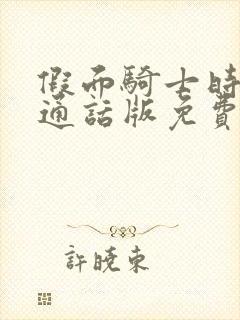 假面騎士時
通話版免費
許曉東